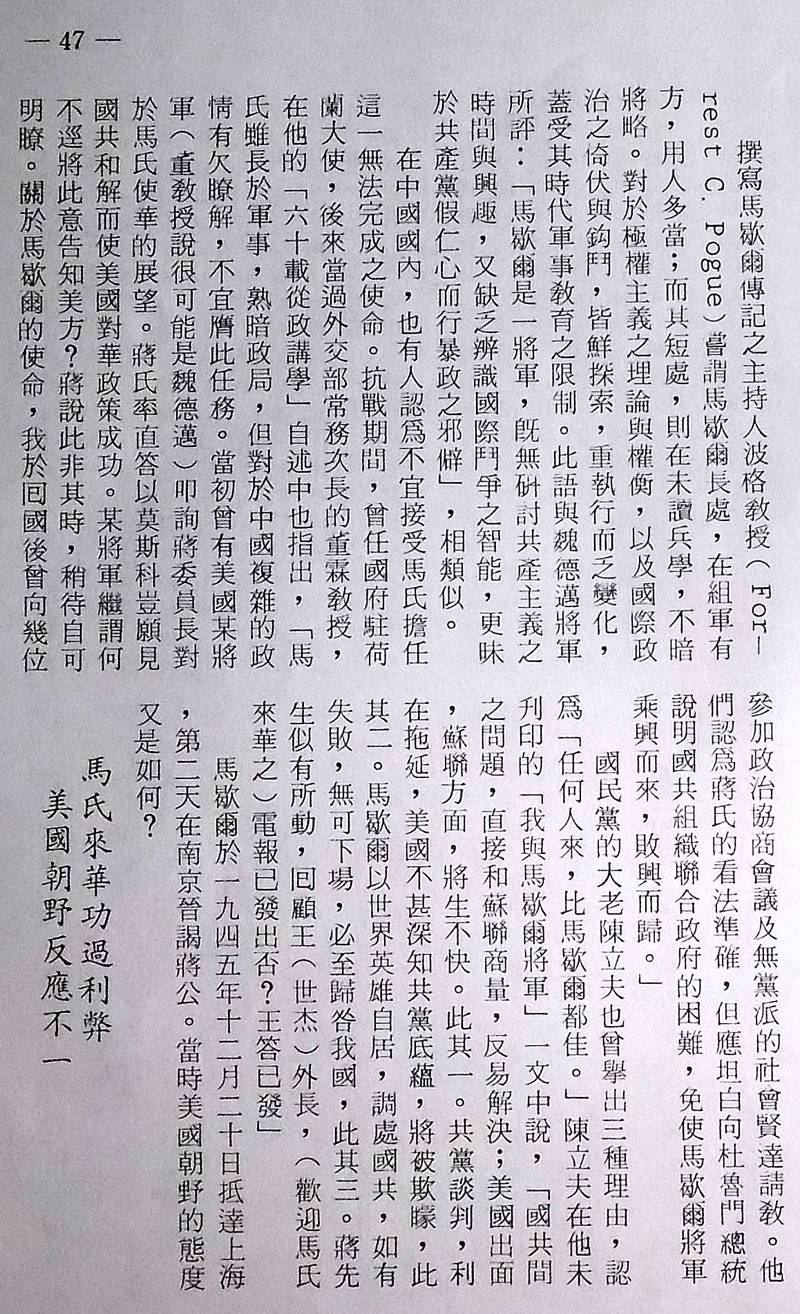 — 47 —
撰寫馬歇爾傳記之主持人波格教授（For—
rest C. Pogue）嘗謂馬歇爾長處，在組軍有
方，用人多當；而其短處，則在未讀兵學，不暗
將略。對於極權主義之理論與權衡，以及國際政
治之倚伏與鈎鬥，皆鮮探索，重執行而乏變化，
蓋受其時代軍事教育之限制。此語與魏德邁將軍
所評：「馬歇爾是一將軍，旣無硏討共產主義之
時間與興趣，又缺乏辨識國際鬥爭之智能，更昧
於共產黨假仁心而行暴政之邪僻」，相類似。
在中國國內，也有人認爲不宜接受馬氏擔任
這一無法完成之使命。抗戰期間，曾任國府駐荷
蘭大使，後來當過外交部常務次長的董霖教授，
在他的「六十載從政講學」自述中也指出，「馬
氏雖長於軍事，熟暗政局，但對於中國複雜的政
情有欠瞭解，不宜膺此任務。當初曾有美國某將
軍（董教授說很可能是魏德邁）叩詢蔣委員長對
於馬氏使華的展望。蔣氏率直答以莫斯科豈願見
國共和解而使美國對華政策成功。某將軍繼謂何
不逕將此意告知美方？蔣說此非其時，稍待自可
明瞭。關於馬歇爾的使命，我於回國後曾向幾位
參加政治協商會議及無黨派的社會賢達請教。他
們認爲蔣氏的看法準確，但應坦白向杜魯門總統
說明國共組織聯合政府的困難，免使馬歇爾將軍
乘興而來，敗興而歸。」
國民黨的大老陳立夫也曾舉出三種理由，認
爲「任何人來，比馬歇爾都佳。」陳立夫在他未
刋印的「我與馬歇爾將軍」一文中說，「國共間
之問題，直接和蘇聯商量，反易解決；美國出面
，蘇聯方面，將生不快。此其一。共黨談判，利
在拖延，美國不甚深知共黨底蘊，將被欺矇，此
其二。馬歇爾以世界英雄自居，調處國共，如有
失敗，無可下場，必至歸咎我國，此其三。蔣先
生似有所動，回顧王（世杰）外長，（歡迎馬氏
來華之）電報已發出否？王答已發」
馬歇爾於一九四五年十二月二十日抵達上海
，第二天在南京晉謁蔣公。當時美國朝野的態度
又是如何？
馬氏來華功過利弊
美國朝野反應不一